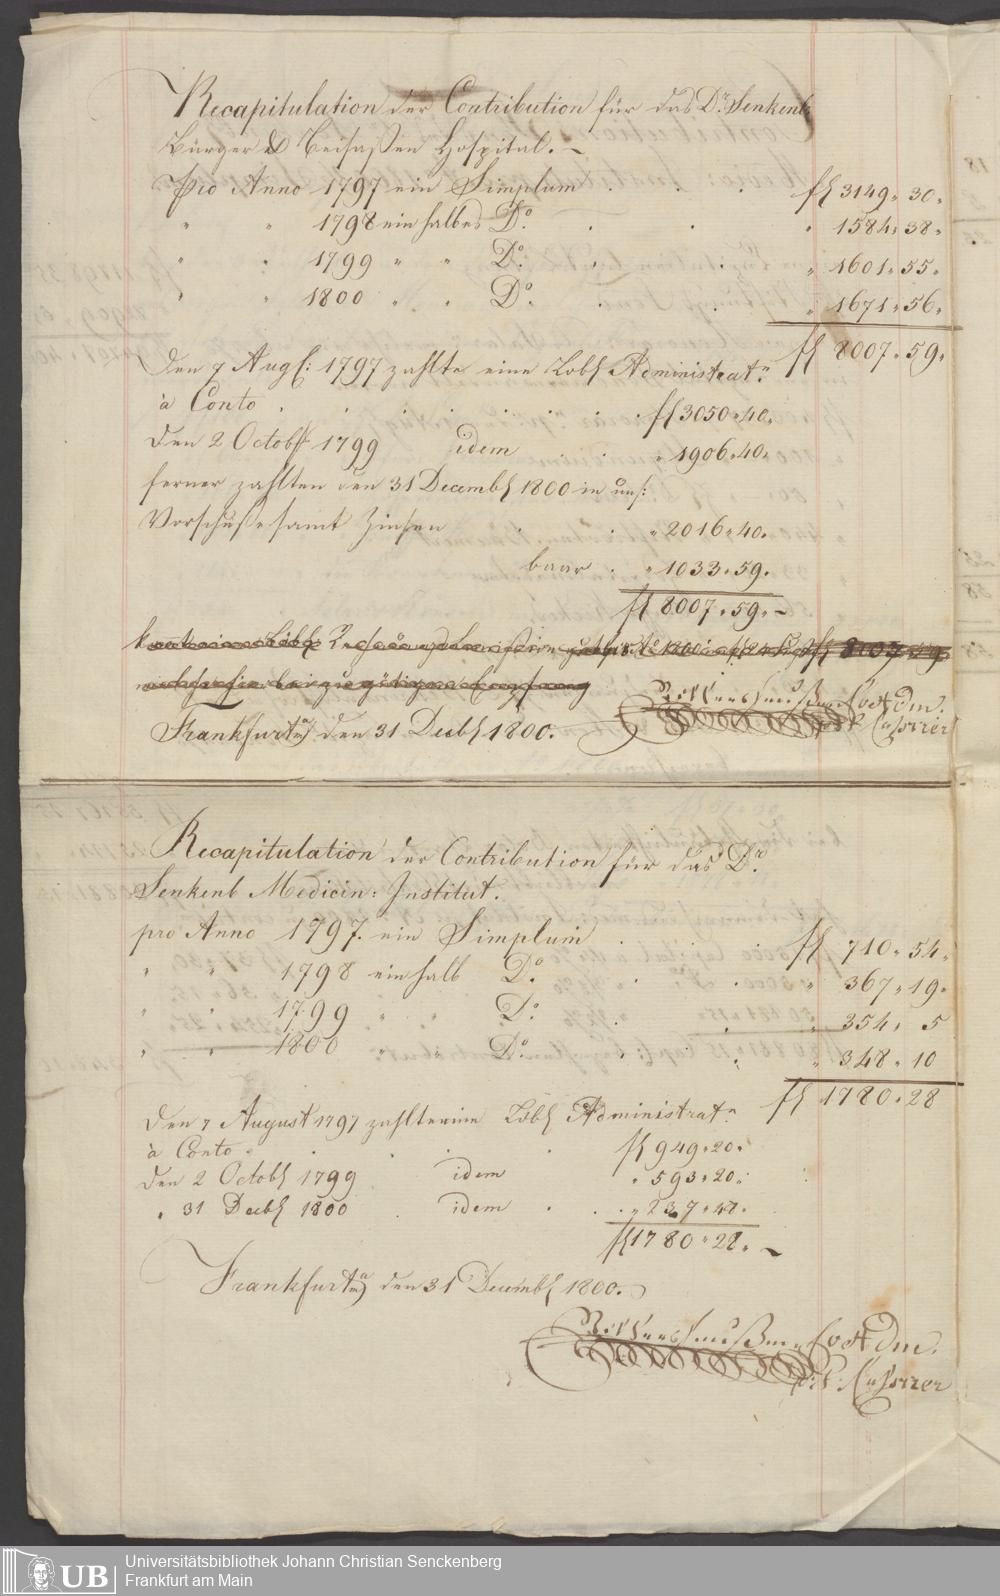 Recapitulation der Contribution für das Dr. Senkenb
Bürger & Beisassen Hospital. –
Pro Anno 1797 ein Simplum . . . fl 3149 „ 30 „
„ „ 1798 ein halbes Do. . . „ 1584 „ 38 „
„ „ 1799 „ „ Do. . . „ 1601 „ 55 „
„ „ 1800 „ „ Do. . . „ 1671 „ 56 „
fl 8007 „ 59 „
Den 7 Augs: 1797 zahlte eine Löbl Administrat.
à Conto . . . . . fl 3050 „ 40 „
Den 2 Octobr 1799 idem . . „ 1906 „ 40 „
ferner zahlten den 31 Decembr 1800 in uns:
Vorschuße samt Zinsen . . „ 2016 „ 40 „
baar . „ 1033 „ 59 .
fl 8007 „ 59 „ –
Frankfurt den 31 Decbr 1800.
Cassirer
Recapitulation der Contribution für das Dr.
Senkenb Medicin: Institut.
pro Anno 1797 ein Simplum . . . fl 710 „ 54 „
„ „ 1798 ein halb Do. . . „ 367 „ 19 „
„ „ 1799 „ „ Do. . . „ 354 „ 5
„ „ 1800 „ „ Do. . . „ 348 „ 10
fl 1780 „ 28
Den 7 August 1797 zahlte eine Löbl Administrat.
à Conto . . . . fl 949 „ 20 „
den 2 Octobr 1799 idem „ 593 „ 20 „
„ 31 Decbr 1800 . idem . . „ 237 „ 48 .
fl 1780 „ 28 „ –
Frankfurt den 31 Decembr 1800.
Cassirer
UB
Universitätsbibliothek Johann Christian Senckenberg
Frankfurt am Main